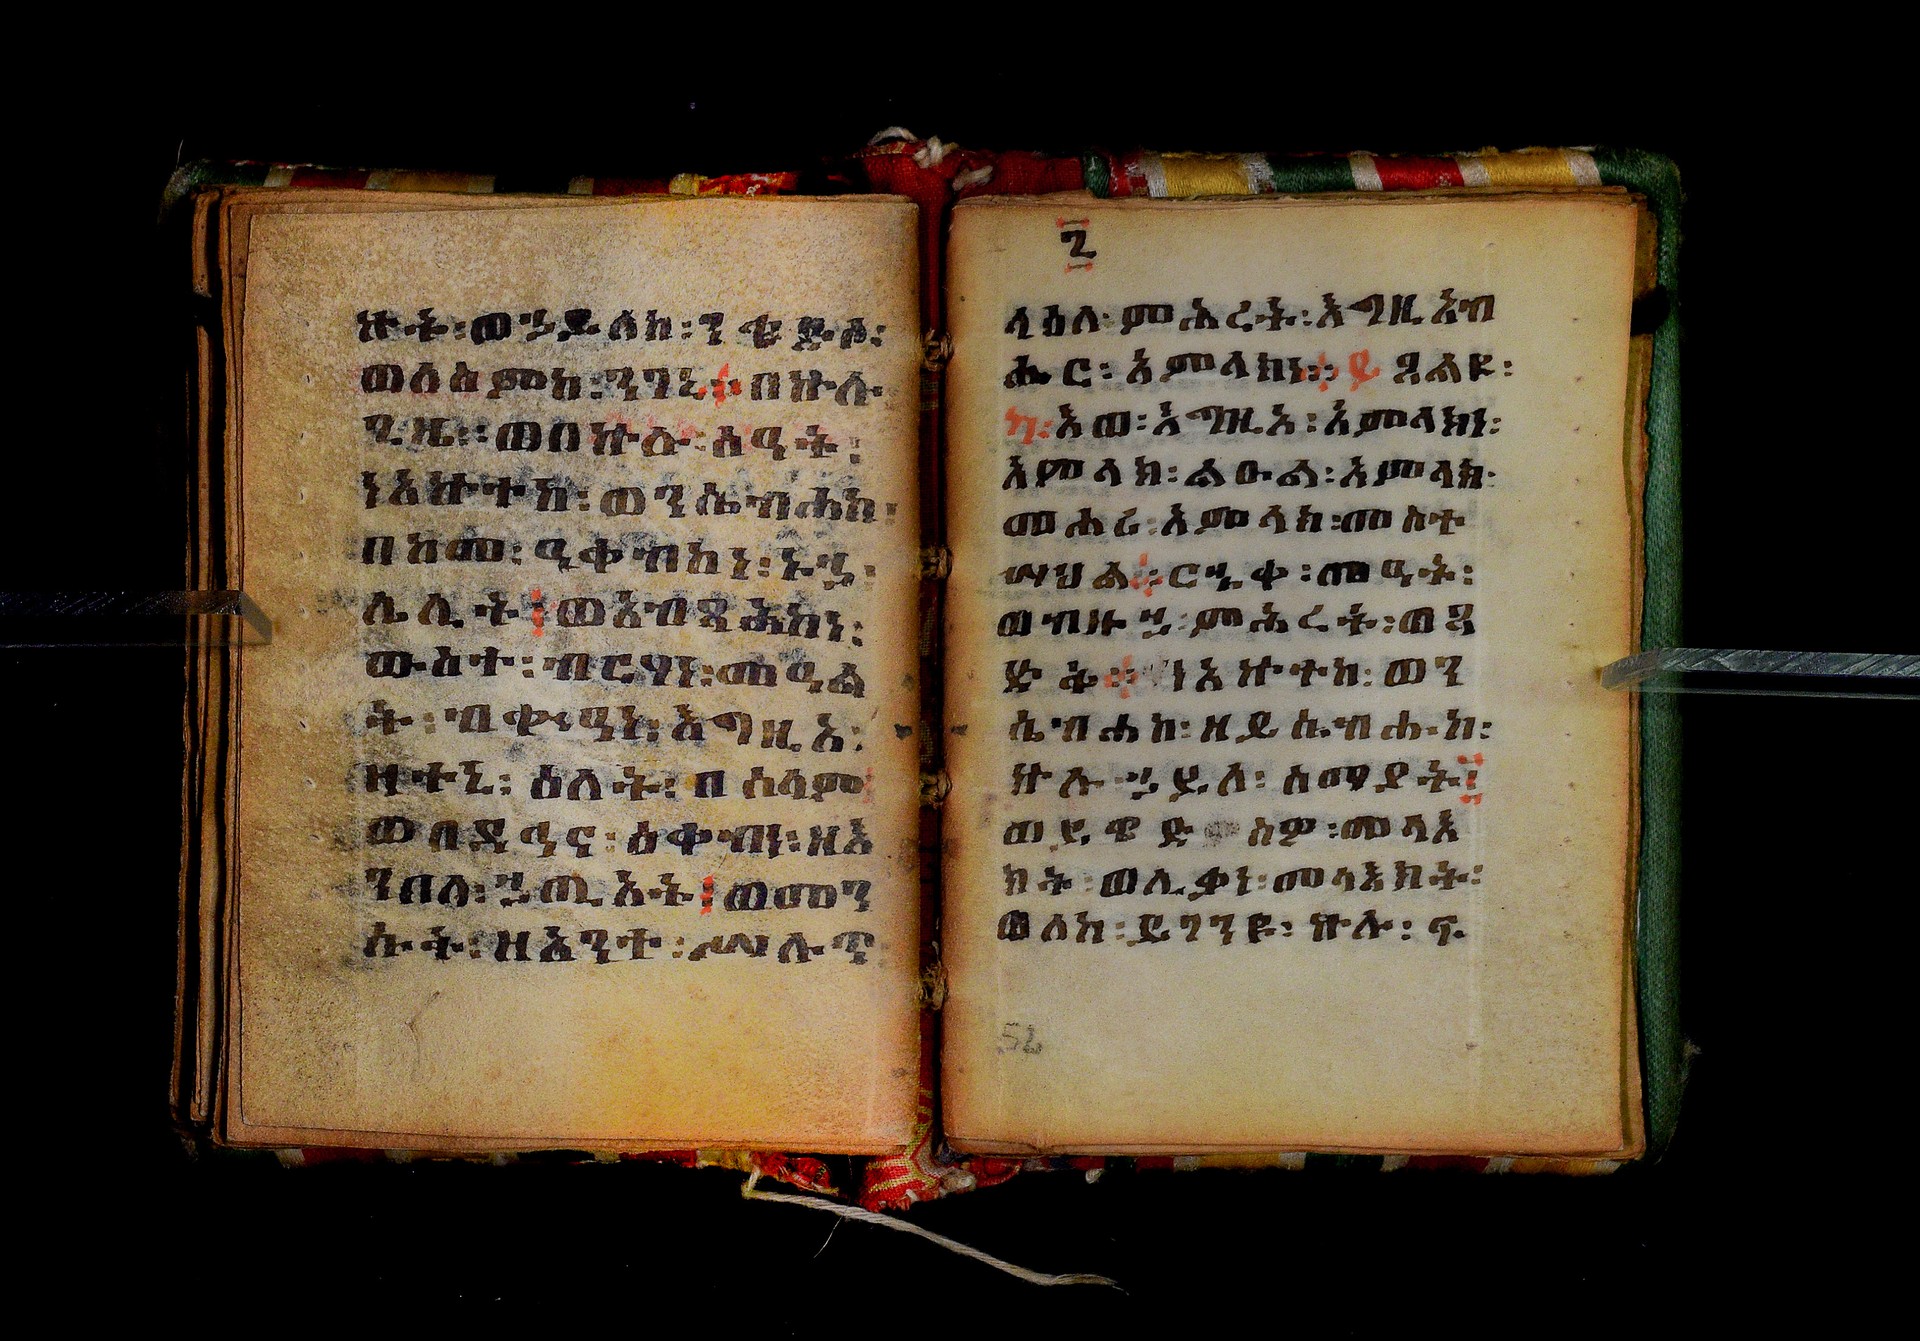 ኵት፡ወኃይለከ፡ንቄድስ፡
ወለስምከ፡ንገኒ፡፡በኵሉ
ጊዜ፡፡ወበኵሉ፡ሰዓት፡
ነአኵተከ፡ወንሴብሐከ፡
በከመ፡ዓቀብከነ፡ኑኃ፡
ሌሊት፡ወአብጻሕከነ፡
ውስተ፡ብርሃነ፡መዓል
ት፡ብቍዓነ፡እግዚኦ፡
ዛተኒ፡ዕለት፡በሰላም
ወበዳዓና፡ዕቀብነ፡ዘእ
ንበለ፡ኃጢአት፡ወመን
ሱት፡ዘእንተ፡
ላዕለ፡ምሕረት፡እግዚአብ
ሔር፡አምላክነ፡፡ይጸልዩ፡
ካ፡እወ፡እግዚኦ፡አምላክነ፡
አምላክ፡ልዑል፡አምላክ፡
መሐሪ፡አምላክ፡መስተ
ሣህል፡ርኁቀ፡መዓት፡
ወብዙኃ፡ምሕረት፡ወጻ
ድቅ፡፡ነአኵተከ፡ወን
ሴብሐከ፡ዘይሴብሑከ፡
ኵሉ ኃይለ፡ሰማያት፡
ስም፡መላእ
ክት፡ወሊቃነ፡መላእክት፡
ወለከ፡ይገንዩ፡ኵሉ፡ፍ
52